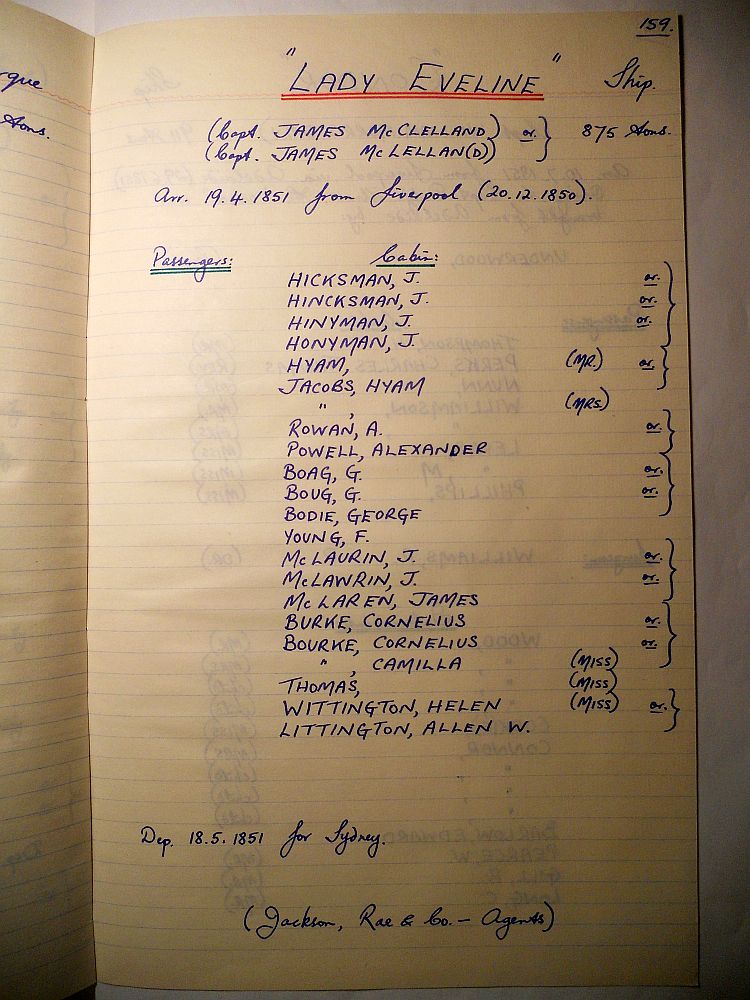 159.
"LADY EVELINE" Ship.
(Capt. JAMES McCLELLAND) or. } 875 tons.
(Capt. JAMES McLELLAN(D))
Arr. 19.4.1851 from Liverpool (20.12.1850).
Passengers: Cabin:
HICKSMAN, J. or.
HINCKSMAN, J. or.
HINYMAN, J. or.
HONYMAN, J.
HYAM, (MR.) or.
JACOBS, HYAM
" , (MRS)
ROWAN, A. or.
POWELL, ALEXANDER
BOAG, G. or.
BOUG, G. or.
BODIE, GEORGE
YOUNG, F.
McLAURIN, J. or.
McLAWRIN, J. or.
McLAREN, JAMES
BURKE, CORNELIUS or.
BOURKE, CORNELIUS or.
" , CAMILLA (MISS)
THOMAS, (MISS)
WITTINGTON, HELEN (MISS) or.
LITTINGTON, ALLEN W.
Dep. 18.5.1851 for Sydney.
(Jackson, Rae & Co. - Agents)